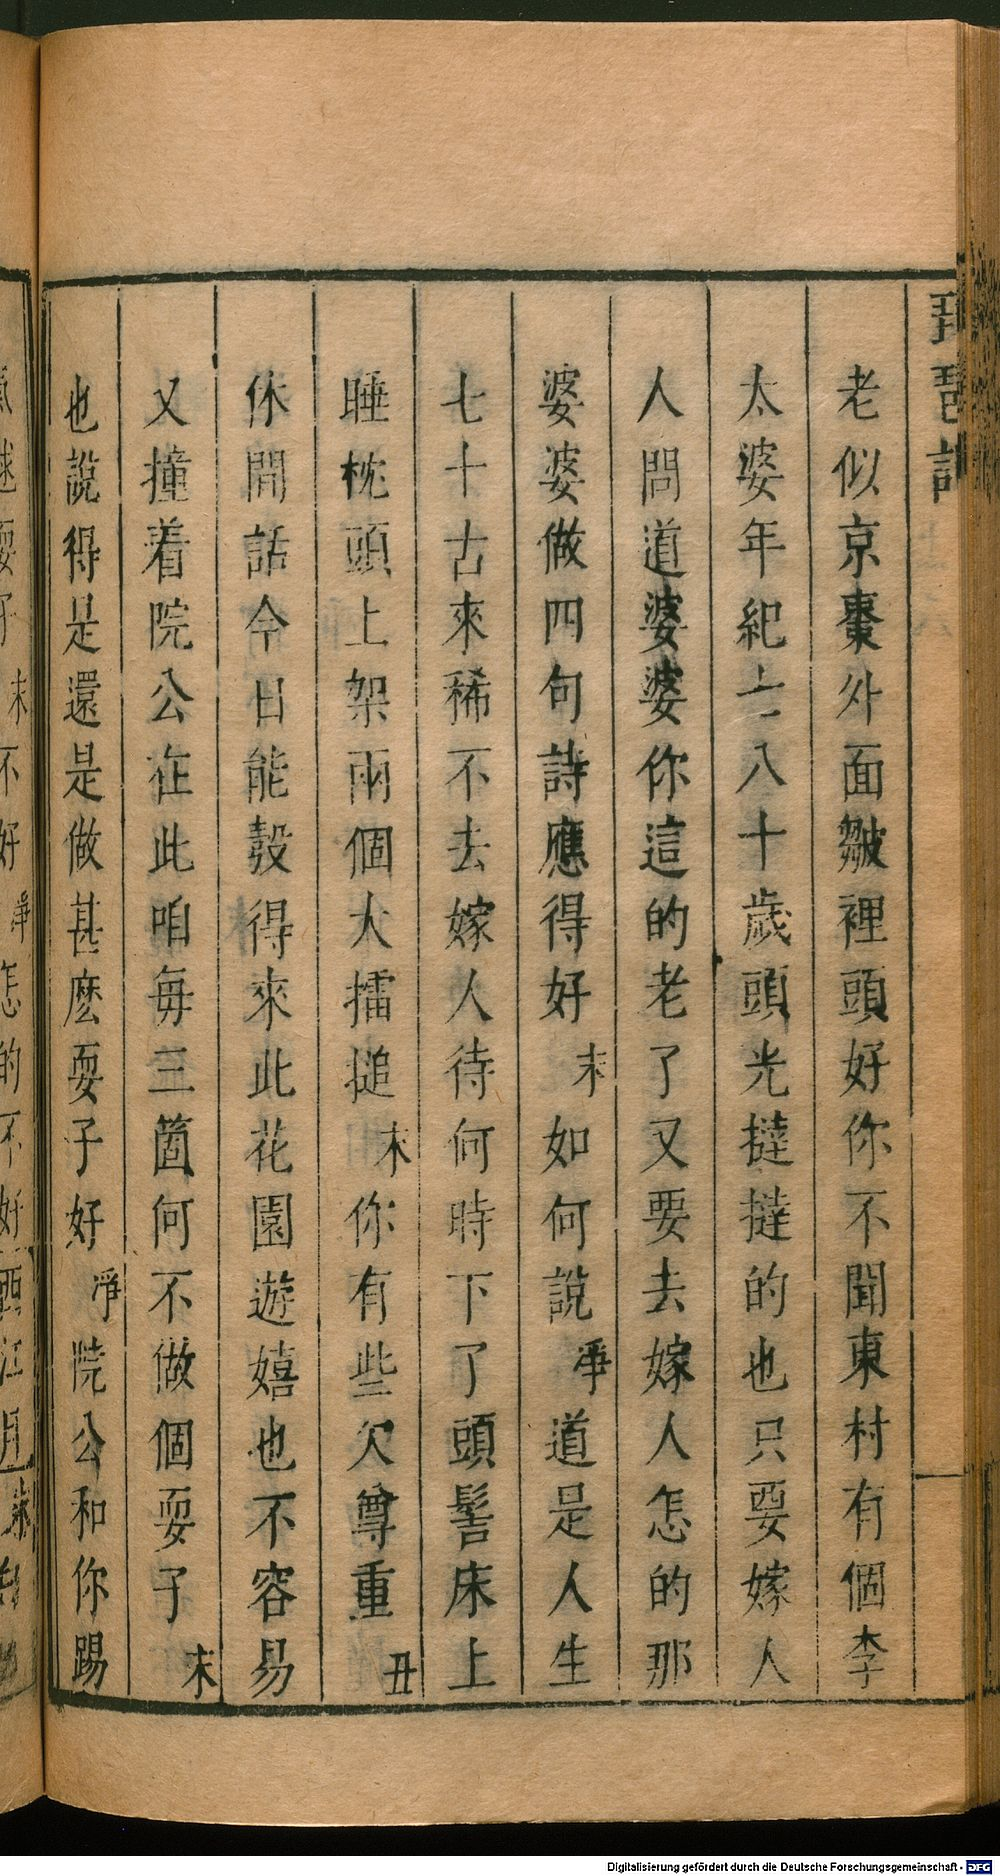 琵琶記
老似京棗外面皺裡頭好你不聞東村有個李
太婆年紀七八十歲頭光撻撻的也只要嫁人
人問道婆婆你這的老了又要去嫁人怎的那
婆婆做四句詩應得好末如何說淨道是人生
七十古來稀不去嫁人待何時下了頭髻床上
睡枕頭上架兩個大擂搥末你有些欠尊重丑
休閒話今日能彀得來此花園遊嬉也不容易
又撞着院公在此咱每三箇何不做個耍子末
也說得是還是做甚麼耍子好淨院公和你踢
耍子末不好淨怎的不好西江月
Digitalisierung gefördert durch die Deutsche Forschungsgemeinschaft - DFG